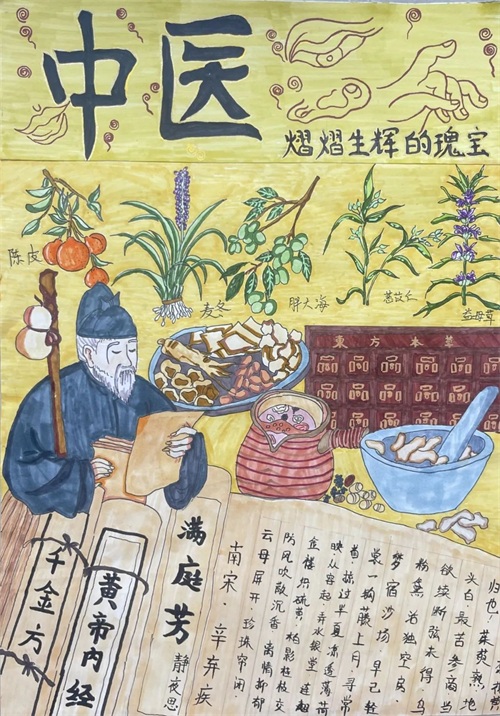 中医
熠熠生辉的瑰宝
陈皮
麦冬
胖大海
益母草
東方本草
千金方
黄帝内经
满庭芳 静夜思
南宋 辛弃疾
云母屏开,珍珠帘闭
防风吹散沉香 离情抑郁
金缕织硫黄,柏影桂枝交
映 从容起,弄水银堂 连翘
首,掠过半夏 凉透薄荷
裳 一钩藤上月,寻常
梦宿沙场 早已轻
粉黛 独活空房
欲续断弦未得 乌
头白,最苦参商 当
归也!茱萸熟 地